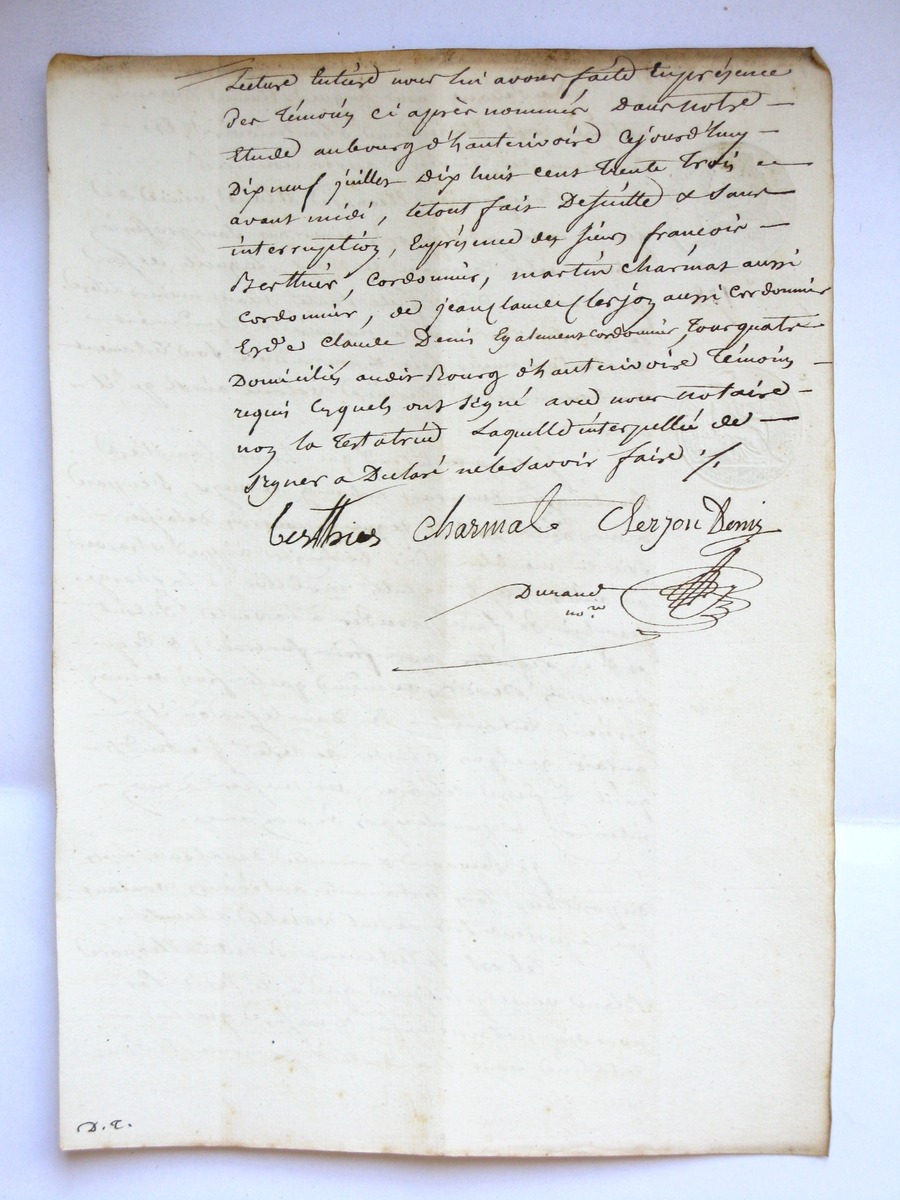 Lecture Entière nous lui avons faite En présence
Des Témoins ci après nommés Dans notre
Etude au bourg d'hauterivoire Cejourd'huy
Dix neuf juillet Dix huit cent Trente Trois
avant midi, Letout fait De suitte & Sans
interruption, En présence des sieurs françois
Berthier, Cordonnier, martin charmat aussi
cordonnier, de jean Claude Clerjon aussi cordonnier
Et de Claude Denis Egalement cordonnier, Tous quatre
Domiciliés audit Bourg d'hauterivoire Témoins
requis Lesquels ont signé avec nous notaire
non la Testatrice Laquelle interpellée de
signer a Déclaré ne le savoir faire ./.
berthier charmat Clerjon Denis
Durand
no.re
D. T.